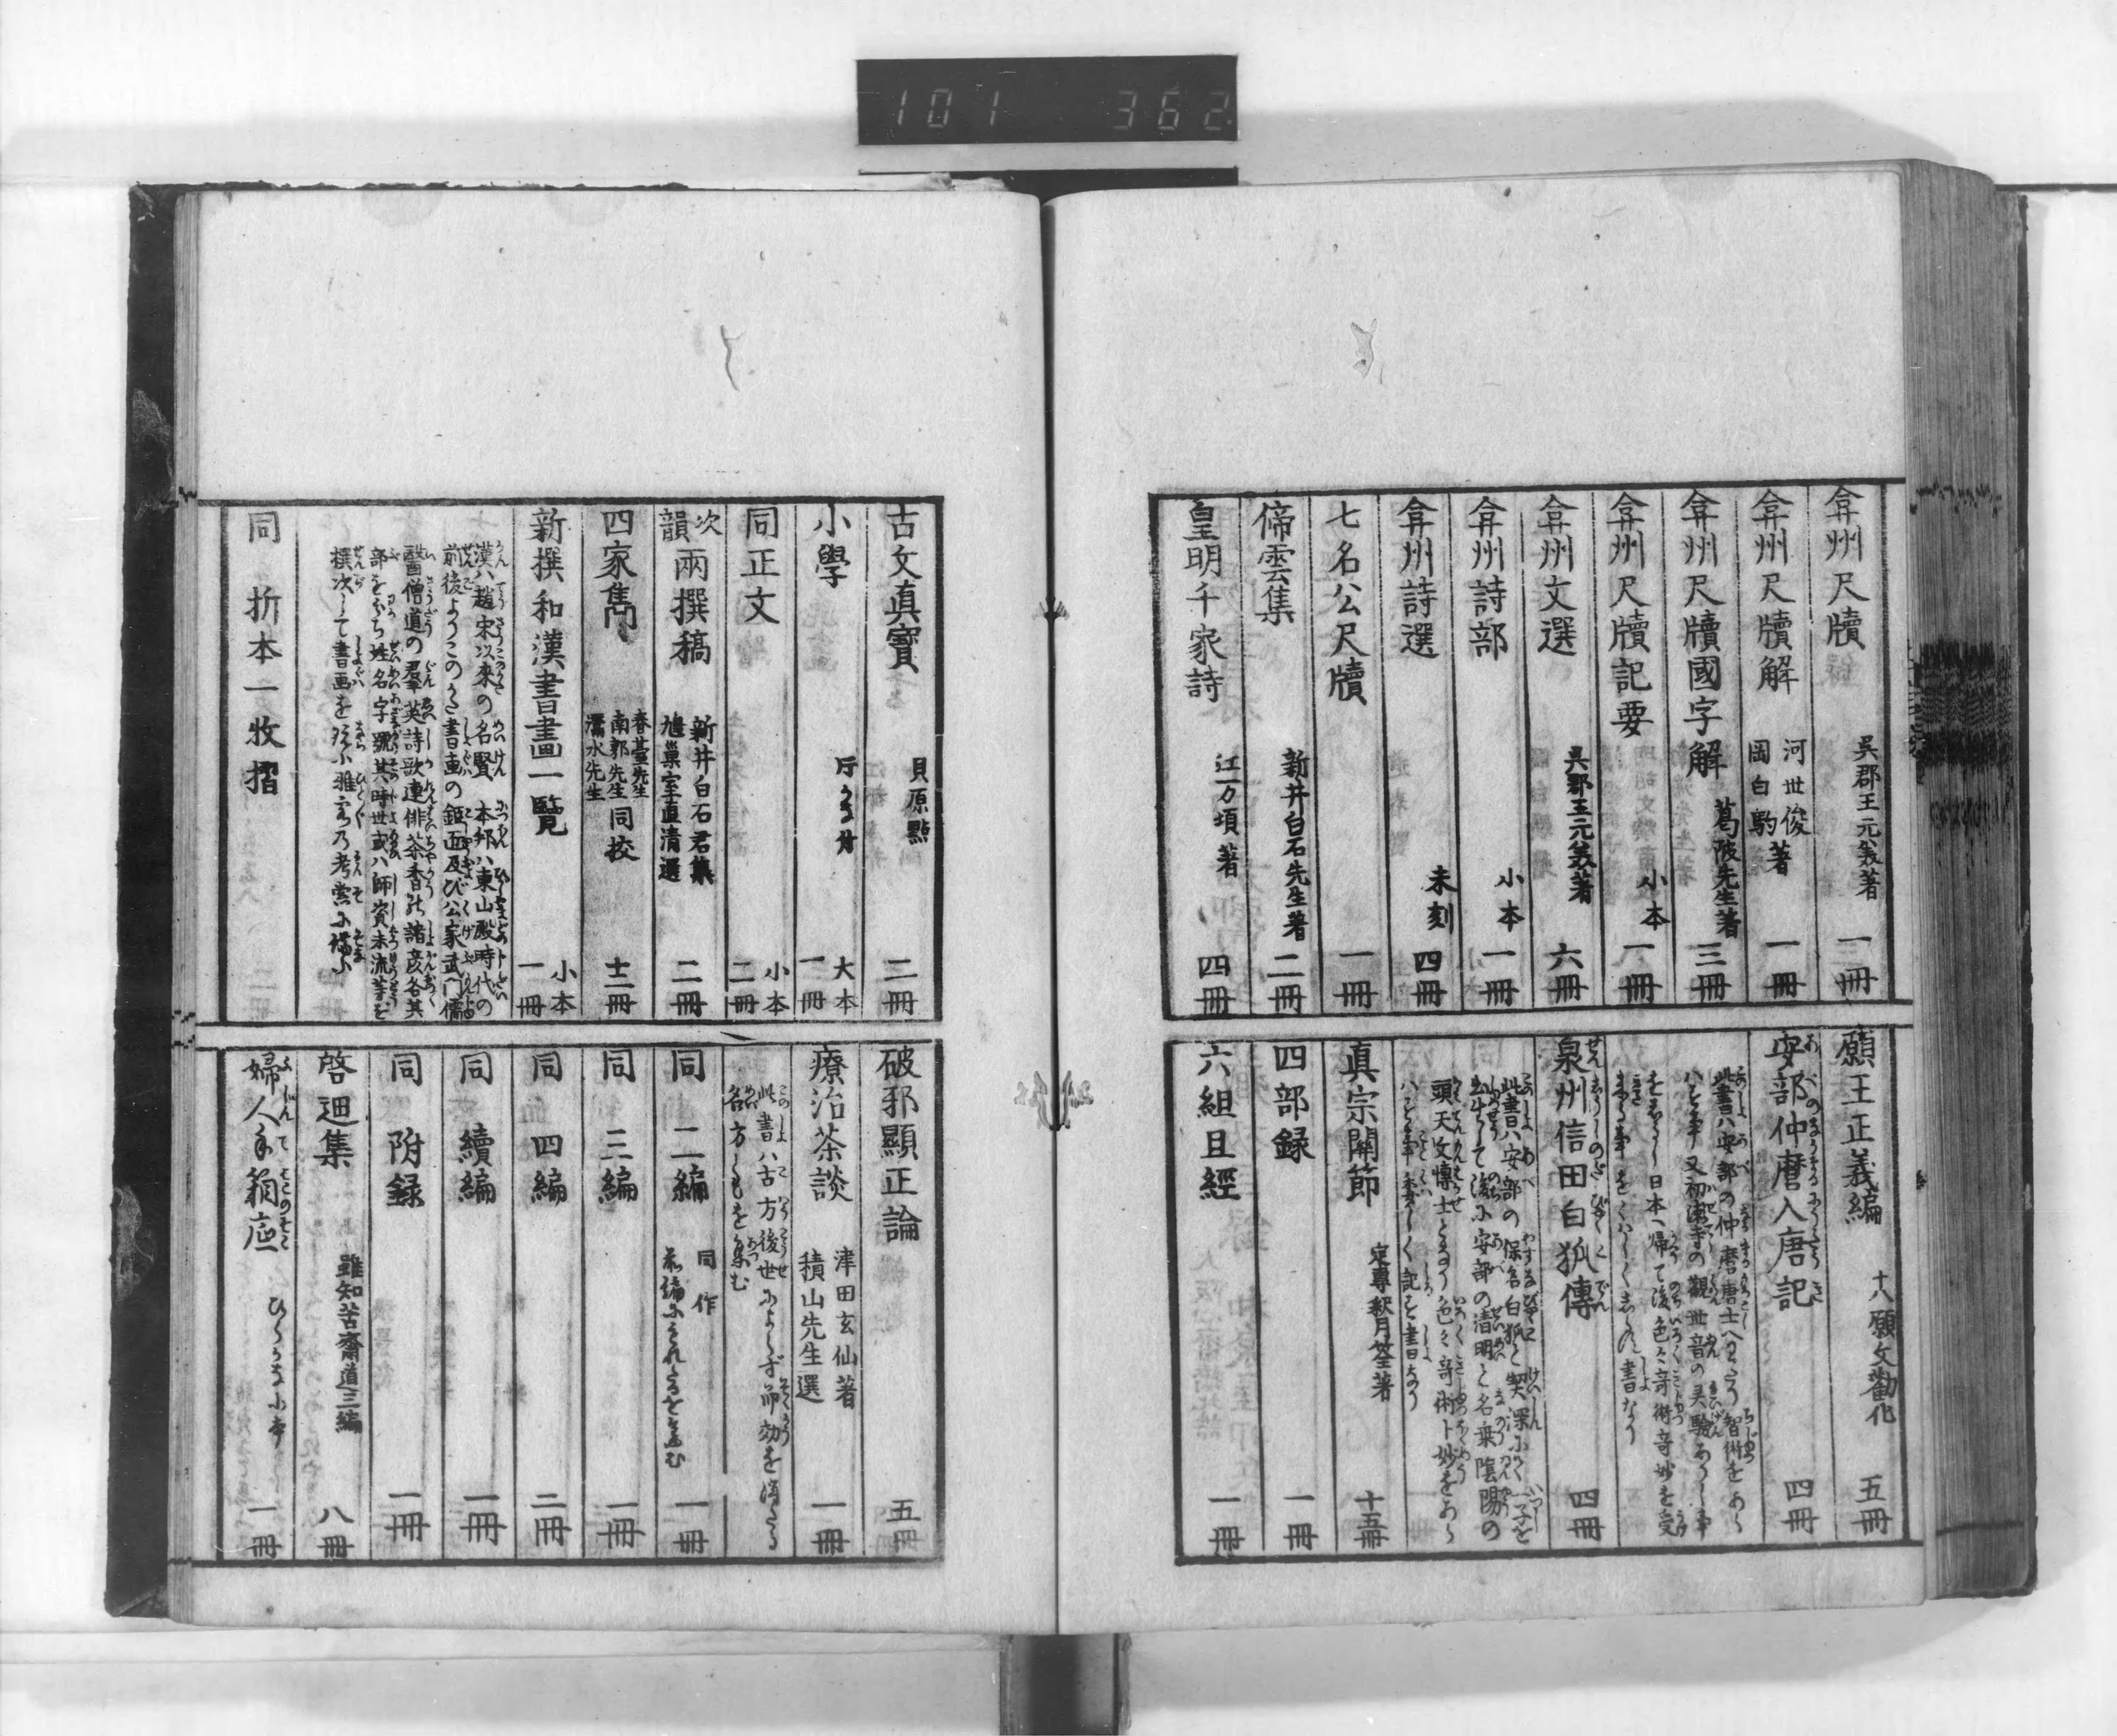 101 362
弇州尺牘 呉郡王元美著 一冊
弇州尺牘解 河世俊 岡白駒著 一冊
弇州尺牘國字解 葛陂先生著 三冊
弇州尺牘記要 小本 一冊
弇州文選 呉郡王元美著 六冊
弇州詩部 小本 一冊
弇州詩選 未刻 四冊
七名公尺牘 一冊
停雲集 新井白石先生著 二冊
皇明千家詩 江万頃著 四冊
願王正義編 十八願文勸化 五冊
安部仲麿入唐記 四冊
此書ハ安部の仲麿唐土へわたり智術をあら
ハす事又初瀬寺の觀世音の灵驗あらし事
日本へ帰て後色々奇術奇妙を受
書なり
泉州信田白狐傳 四冊
此書ハ安部の保名白狐と契深ふして一子を
出生して後ふ安部の清明と名乗陰陽の
頭天文慱士となり色々奇術ト妙をあら
ハす事委しく記す書なり
眞宗關節 定專釈月筌著 十五冊
四部録 一冊
六組且經 一冊
古文真寶 貝原點 二冊
小學 大本 一冊
同正文 小本 二冊
次韻兩撰稿 新井白石君集 鳩巢室直清選 二冊
四家雋 春臺先生 南郭先生 灊水先生 同挍 十二冊
新撰和漢書畫一覽 小本 一冊
漢ハ趙宋以来の名賢 本邦ハ東山殿時代の
前後よりこのかた書画の鉅匠及び公家武門儒
醫僧道の羣英詩歌連俳茶香の諸彦各其
部をわかち姓名字號其時世或ハ師資末流等を
撰次して書画を
同 折本一枚摺
破邪顯正論 五冊
療治茶談 津田玄仙著 積山先生選 一冊
此書ハ古方後世によらず即効を得たる
名方ともを集む
同 二編 同作 前編にもれたるを集む 一冊
同 三編 一冊
同 四編 二冊
同 續編 一冊
同 附録 一冊
啓迪集 雖知苦齋道三編 八冊
婦人手箱底 ひらかな小本 一冊